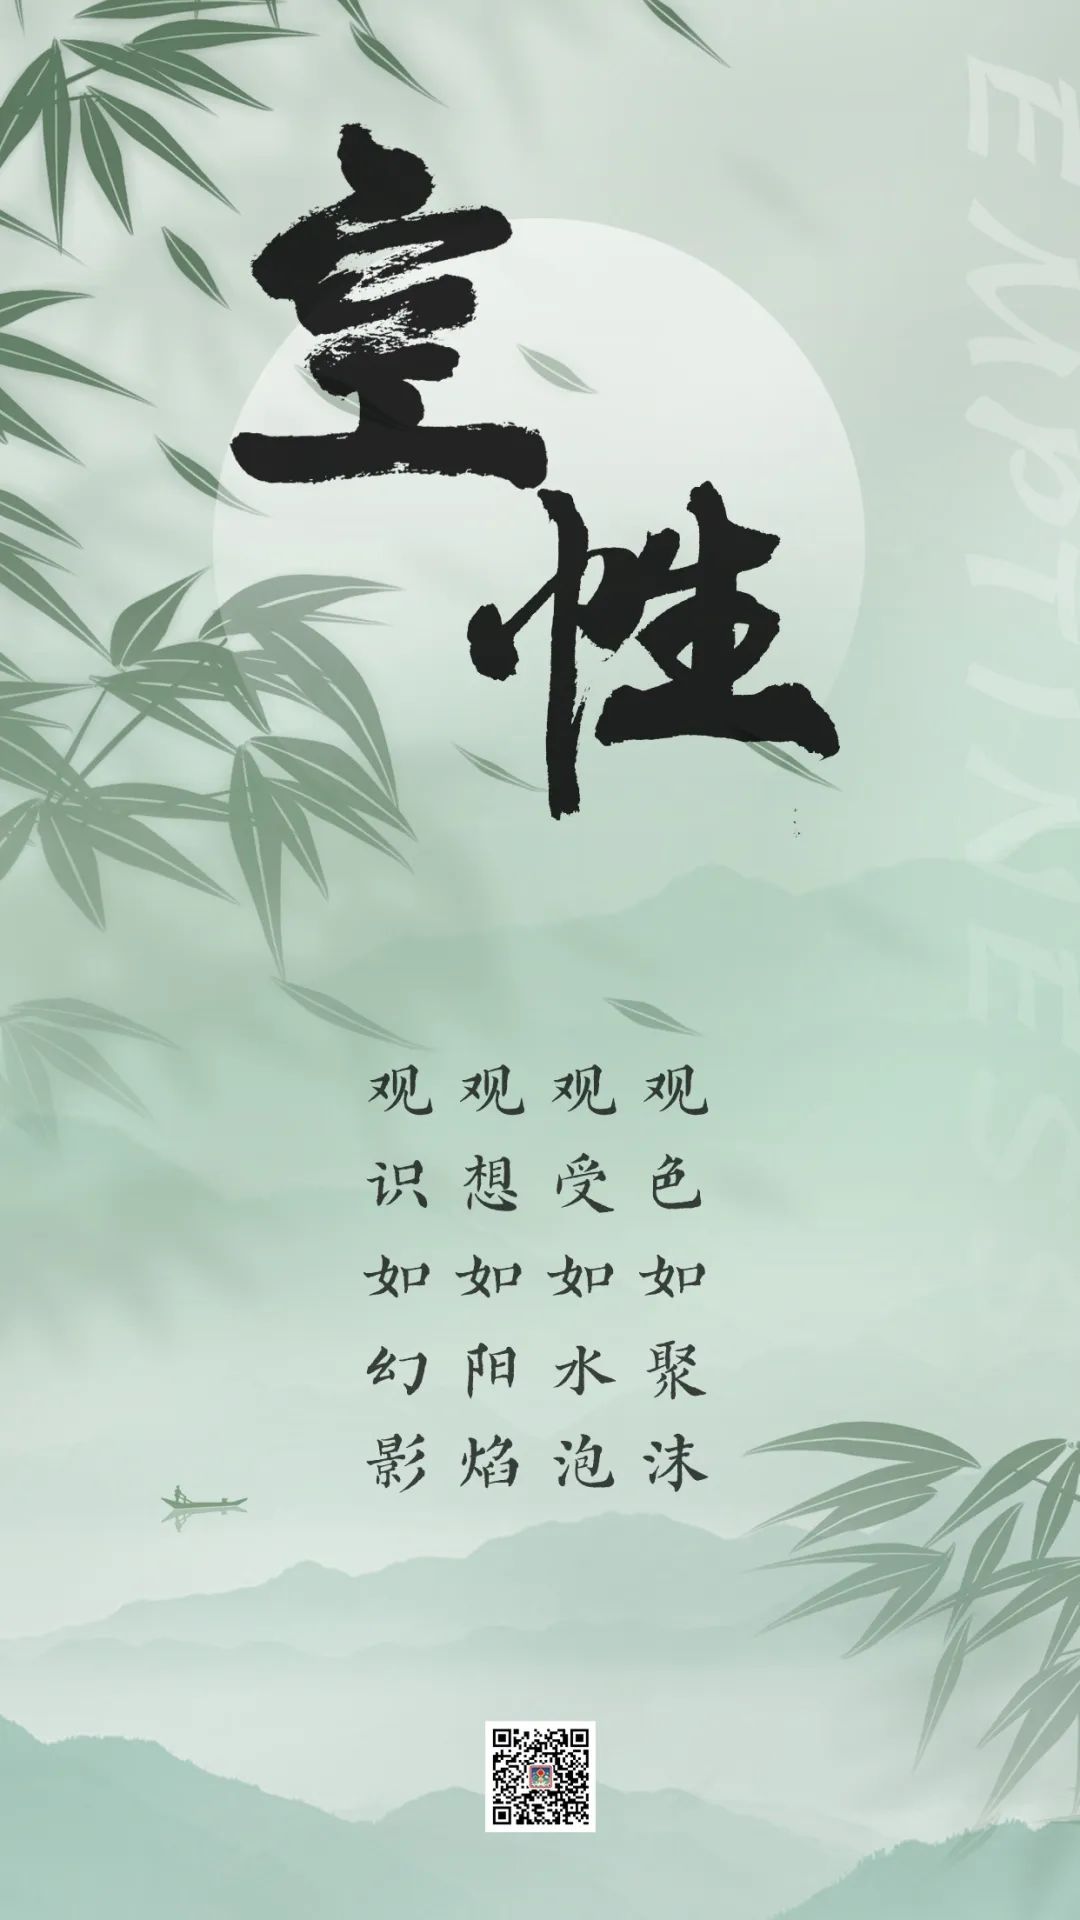 空性
EMPTINESS
观色如聚沫
观受如水泡
观想如阳焰
观识如幻影